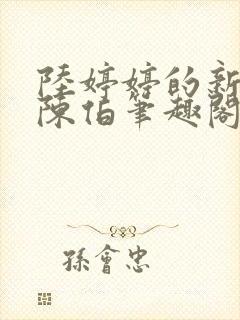 陸婷婷的新
陳伯筆趣閣
孫會忠